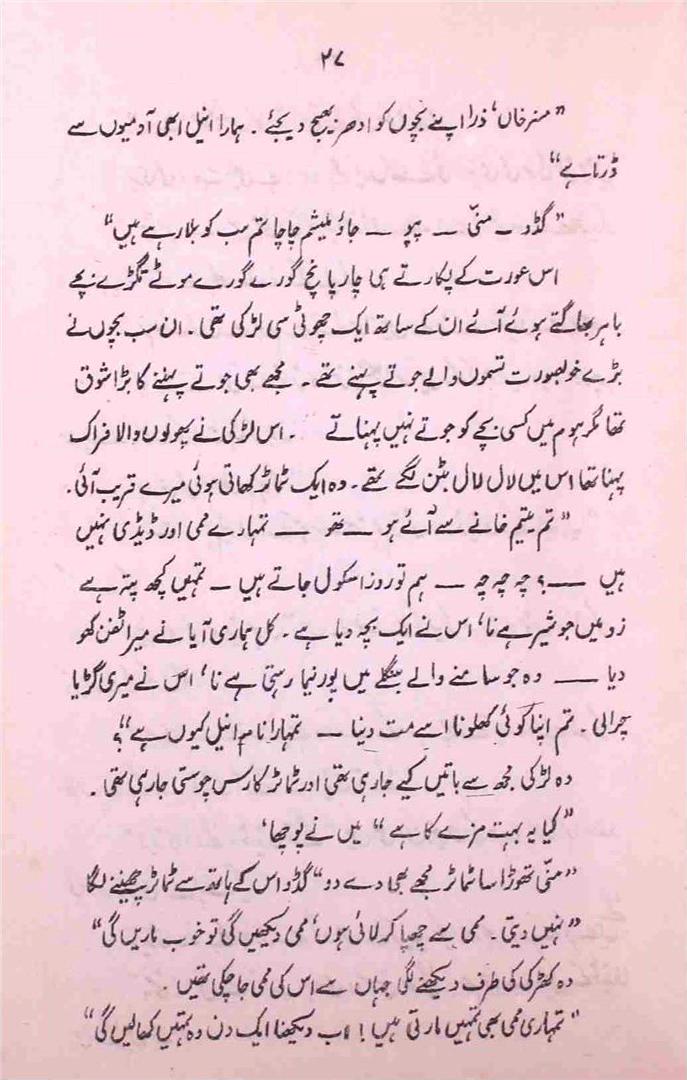 ۲۷
”مسز خاں‘ ذرا اپنے بچوں کو ادھر بھیج دیجئے ۔ ہمارا انیل ابھی آدمیوں سے
ڈرتا ہے“
”گڈو ۔ منّی ۔ پپو ۔ جاؤ میشم چاچا تم سب کو بلا رہے ہیں“
اس عورت کے پکارتے ہی چار پانچ گورے گورے موٹے تگڑے بچے
باہر بھاگتے ہوئے آئے ان کے ساتھ ایک چھوٹی سی لڑکی تھی ۔ ان سب بچوں نے
بڑے خوبصورت تسموں والے جوتے پہنے تھے ۔ مجھے بھی جوتے پہننے کا بڑا شوق
تھا مگر ہوم میں کسی بچے کو جوتے نہیں پہناتے ۔ اس لڑکی نے پھولوں والا فراک
پہنا تھا اس میں لال لال بٹن لگے تھے ۔ وہ ایک ٹماٹر کھاتی ہوئی میرے قریب آئی ۔
”تم یتیم خانے سے آئے ہو ۔ تھو ۔ تمہارے ممی اور ڈیڈی نہیں
ہیں ۔ ؟ چہ چہ چہ ۔ ہم تو روز اسکول جاتے ہیں ۔ تمہیں کچھ پتہ ہے
زو میں جو شیر ہے نا‘ اس نے ایک بچہ دیا ہے ۔ کل ہماری آیا نے میرا ٹفن کھو
دیا ۔ وہ جو سامنے والے بنگلے میں پورنیما رہتی ہے نا‘ اس نے میری گڑیا
چرالی ۔ تم اپنا کوئی کھلونا اسے مت دینا ۔ تمہارا نام انیل کیوں ہے“؟
وہ لڑکی مجھ سے باتیں کیے جا رہی تھی اور ٹماٹر کا رس چوستی جا رہی تھی ۔
”کیا یہ بہت مزے کا ہے“ میں نے پوچھا‘
”منّی تھوڑا سا ٹماٹر مجھے بھی دے دو“ گڈو اس کے ہاتھ سے ٹماٹر چھیننے لگا
”نہیں دیتی ۔ ممی سے چھپا کر لائی ہوں‘ ممی دیکھیں گی تو خوب ماریں گی“
وہ کھڑکی کی طرف دیکھنے لگی جہاں سے اس کی ممی جا چکی تھیں ۔
”تمہاری ممی بھی تمہیں مارتی ہیں ! اب دیکھنا ایک دن وہ تمہیں کھا لیں گی“